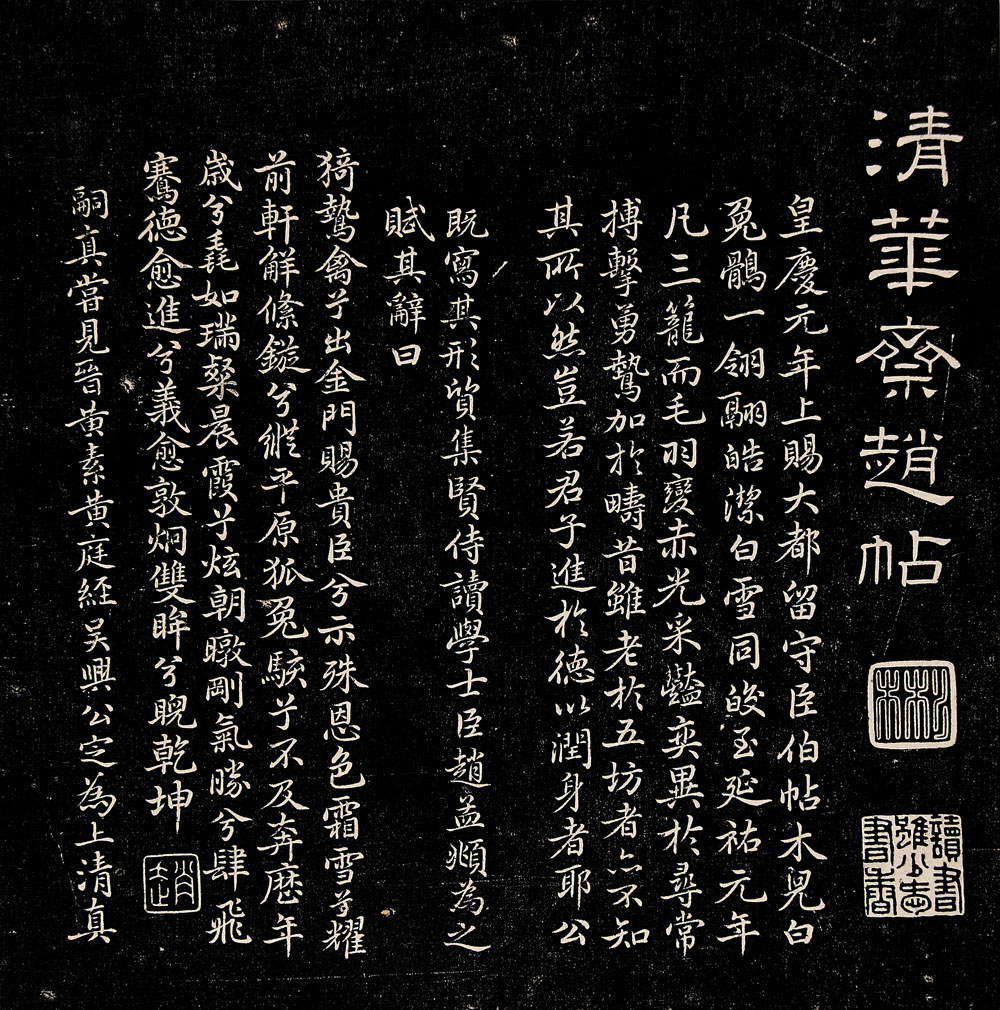 清華齋趙帖
讀書雖少志書香
皇慶元年上賜大都留守臣伯帖木兒白
兔鶻一翎翮皓潔白雪同皎至延祐元年
凡三籠而毛羽變赤光采豔奕異於尋常
搏擊勇鷙加於疇昔雖老於五坊者亦不知
其所以然豈若君子進於德以潤身者耶公
既寫其形質集賢侍讀學士臣趙孟頫為之
賦其辭曰
猗鷙禽兮出金門賜貴臣兮示殊恩色霜雪兮耀
前軒解絛鏇兮縱平原狐兔駭兮不及奔歷年
歲兮毳如瑞粲晨霞兮炫朝暾剛氣勝兮肆飛
騫德愈進兮義愈敦炯雙眸兮睨乾坤
趙
嗣真嘗見晉黃素黃庭經吳興公定為上清真